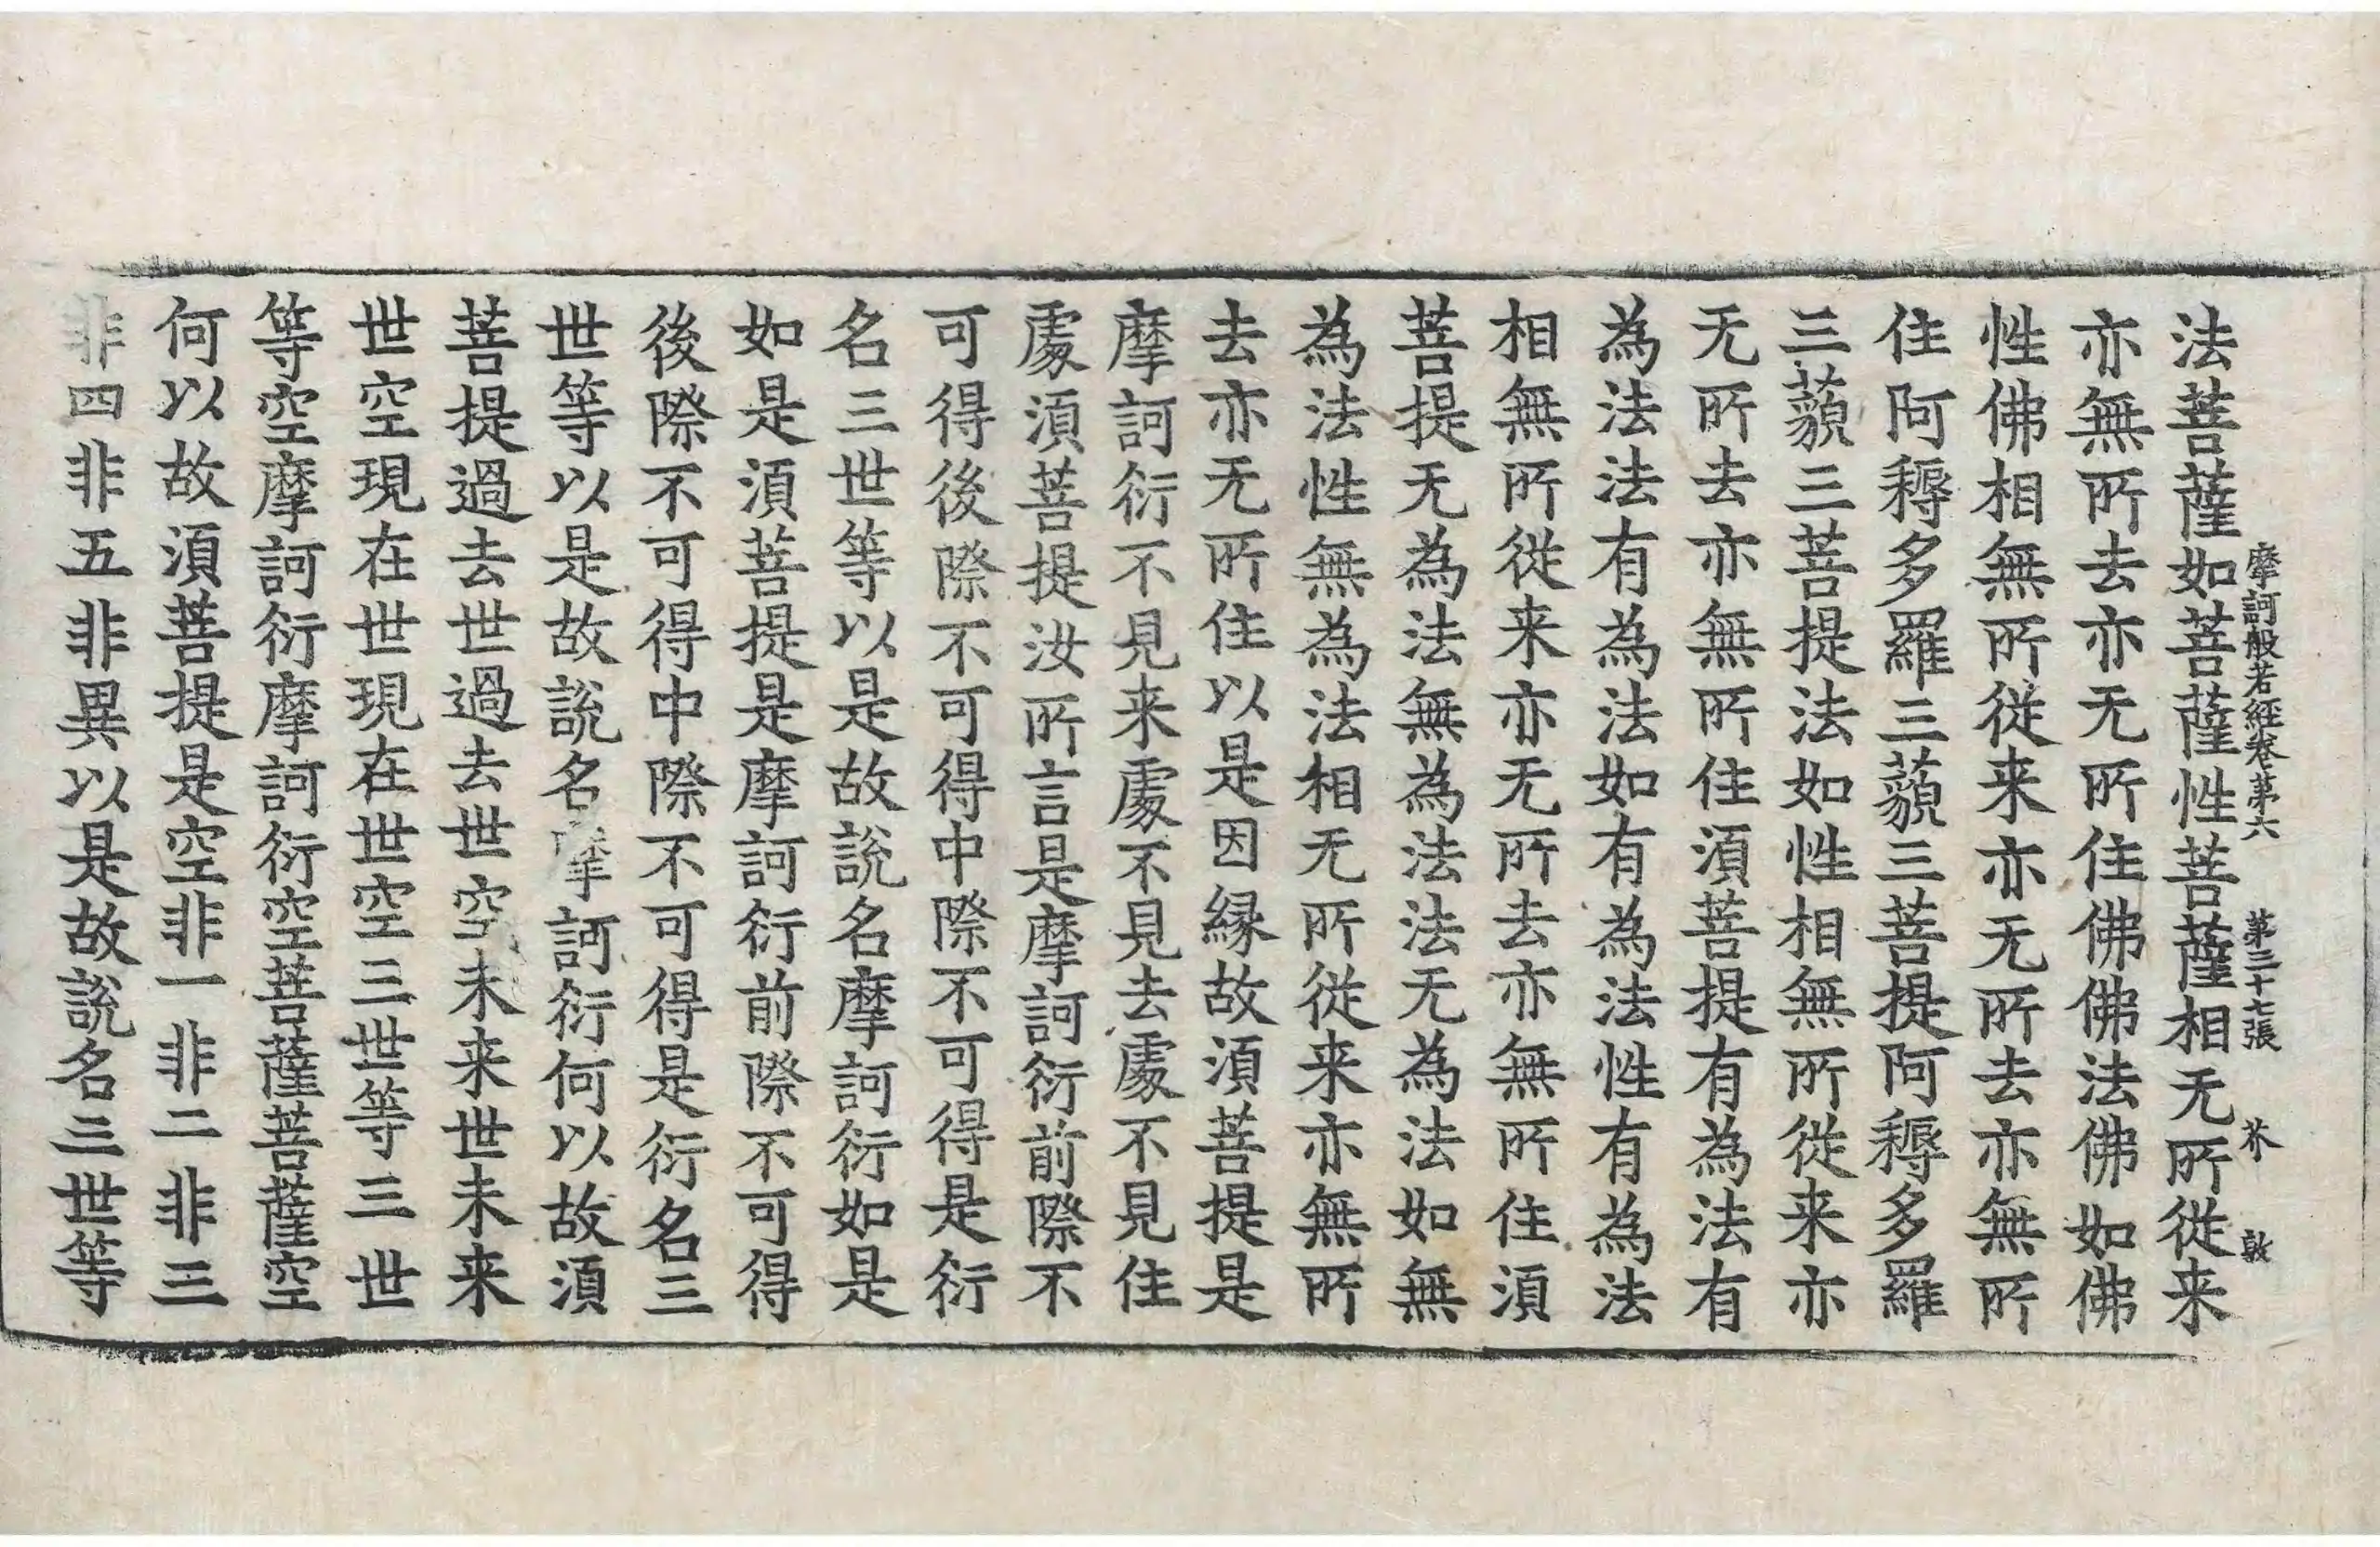 摩訶般若經卷第六　第三十七張　芥　敦
法菩薩如菩薩性菩薩相无所從来
亦無所去亦无所住佛佛法佛如佛
性佛相無所從来亦无所去亦無所
住阿耨多羅三藐三菩提阿耨多羅
三藐三菩提法如性相無所從来亦
无所去亦無所住湏菩提有為法有
為法法有為法如有為法性有為法
相無所從来亦无所去亦無所住湏
菩提无為法無為法法无為法如無
為法性無為法相无所從来亦無所
去亦无所住以是因縁故湏菩提是
摩訶衍不見来處不見去處不見住
處湏菩提汝所言是摩訶衍前際不
可得後際不可得中際不可得是衍
名三世等以是故說名摩訶衍如是
如是湏菩提是摩訶衍前際不可得
後際不可得中際不可得是衍名三
世等以是故說名摩訶衍何以故湏
菩提過去世過去世空未来世未来
世空現在世現在世空三世等三世
等空摩訶衍摩訶衍空菩薩菩薩空
何以故湏菩提是空非一非二非三
非四非五非異以是故說名三世等